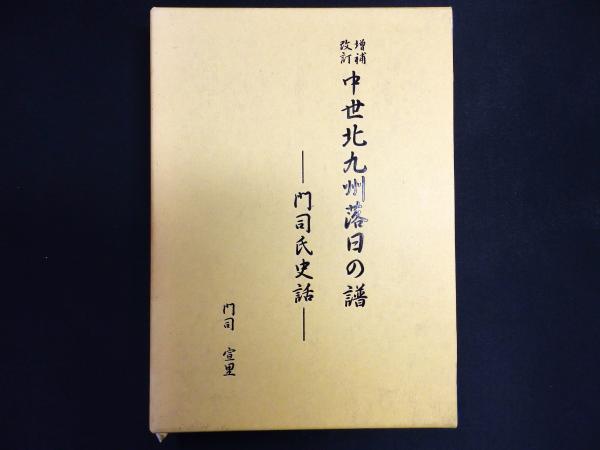 増補
改訂
中世北九州落日の譜
―門司氏史話―
門司 宣里